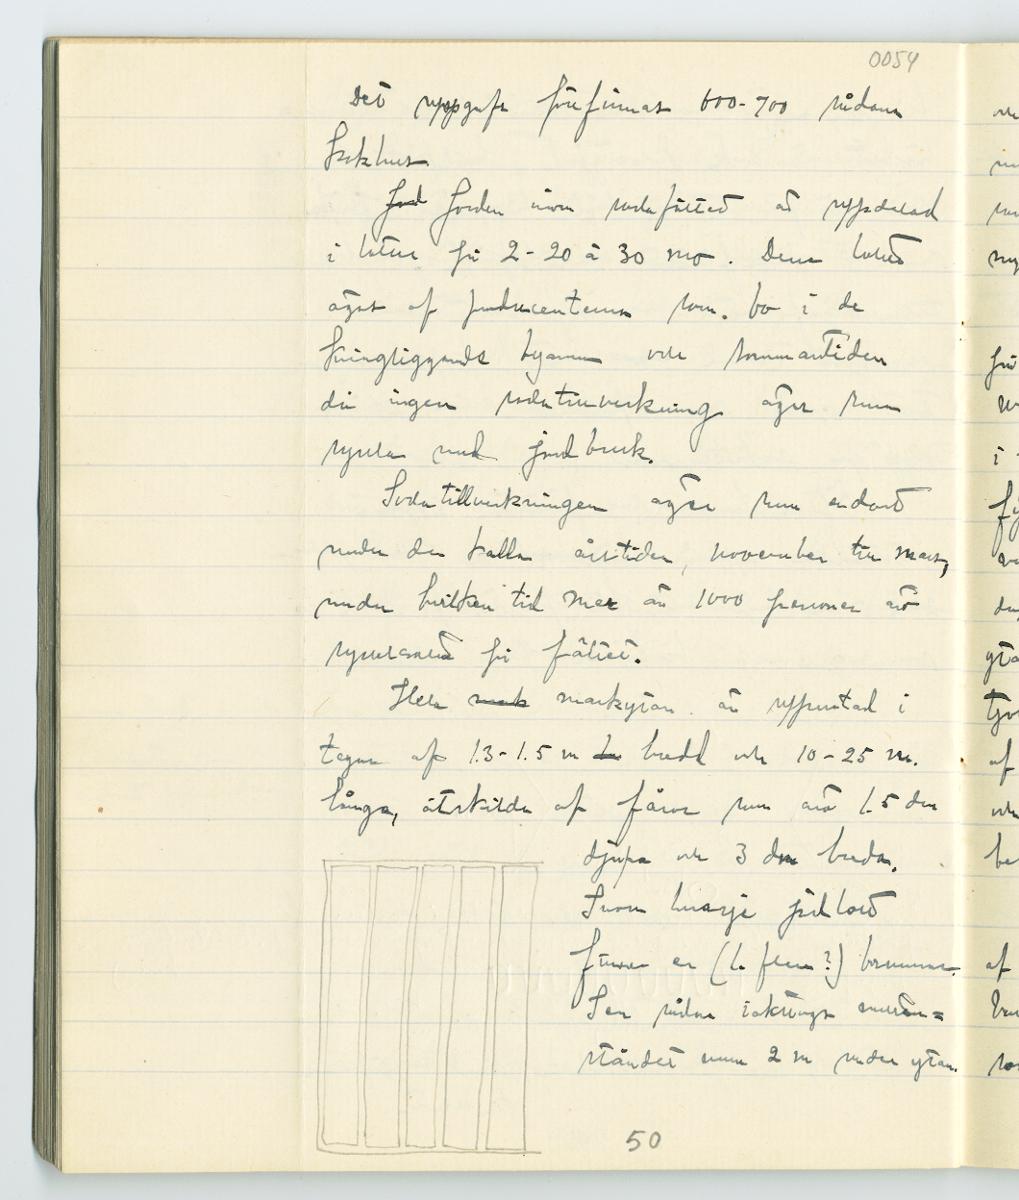 0054
Det uppgafs förefinnas 600-700 sådana
kokhus
Jord Jorden inom sodafältet är uppdelad
i lotter på 2-20 à 30 mo. Dessa
äges af producenterna som bo i de
kringliggande byarna och sommartiden
då ingen sodatillverkning äger rum
syssla med jordbruk.
Sodatillverkningen äger rum endast
under den kalla årstiden, november till mars,
under hvilken tid mer än 1000 personer äro
sysselsatta på fältet.
Hela mark markytan är uppdelad i
tegar af 1.3-1.5 m bredd och 10-25 m.
långa, åtskilda af fåror som äro 1.5 dm
djupa och 3 dm breda.
Inom hvarje jordlott
finnes en (l. flera?) brunnar.
I en sådan iakttogs vatten=
ståndet 2 m under ytan.
50